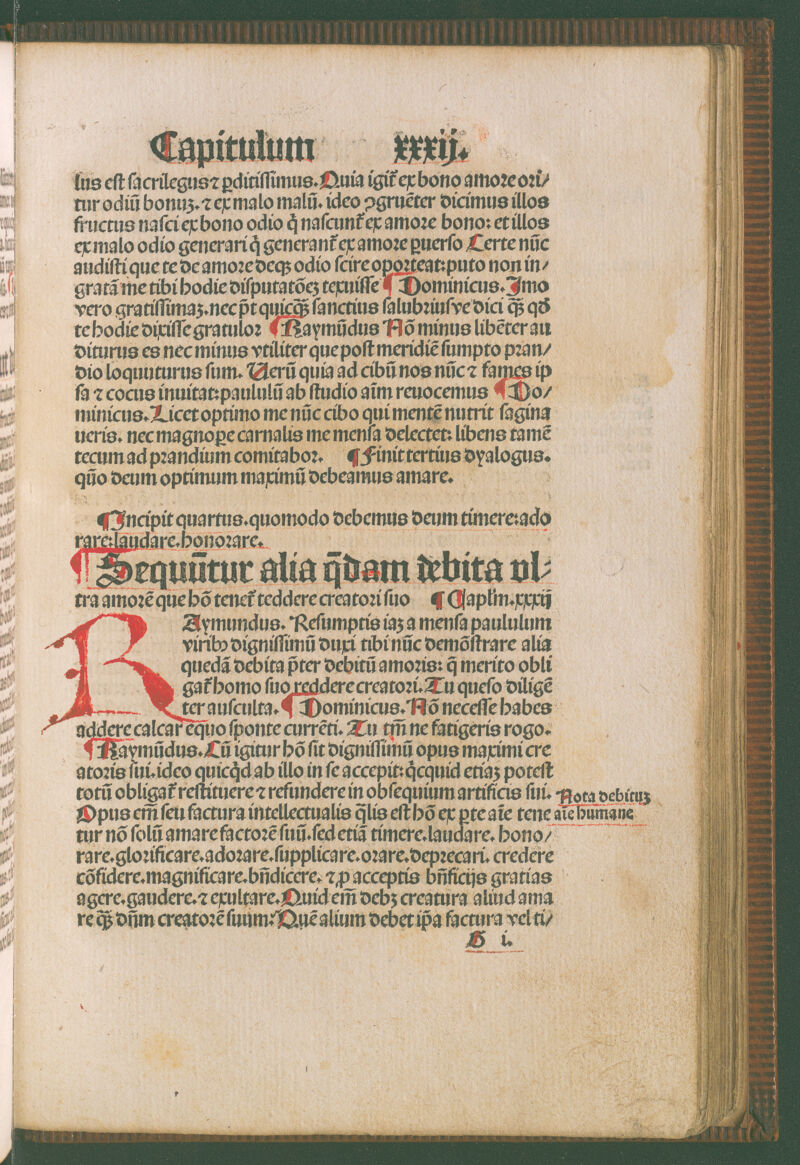 Capitulum xxxij.
lus est sacrilegus ⁊ ꝑditissimus. Quia igit᷑ ex bono amore ori/
tur odiū bonuꝫ. ⁊ ex malo malū. ideo ꝯgruēter dicimus illos
fructus nasci ex bono odio q̄ nascunt᷑ ex amore bono: et illos
ex malo odio generari q̄ generant᷑ ex amore ꝑuerso Certe nūc
audisti que te de amore deqꝫ odio scire oporteat: puto non in/
gratā me tibi hodie disputatōeꝫ texuisse ¶ Dominicus. Imo
vero gratissimaꝫ. nec p̄t quicq̄ꝫ sanctius salubriusve dici q̄ꝫ qđ
te hodie dixisse gratulor ¶ Raymūdus Nō minus libēter au
diturus es nec minus vtiliter que post meridiē sumpto pran/
dio loquuturus sum. Verū quia ad cibū nos nūc ⁊ fames ip
sa ⁊ cocus inuitat: paululū ab studio aīm reuocemus ¶ Do/
minicus. Licet optimo me nūc cibo qui mentē nutrit sagina
ueris. nec magnoꝑe carnalis me mensa delectet: libens tamē
tecum ad prandium comitabor. ¶ Finit tertius dyalogus.
qūo deum optimum maximū debeamus amare.
¶ Incipit quartus. quomodo debemus deum timere: ado
rare: laudare. honorare.
¶ Sequūtur alia q̄dam debita vl/
tra amorē que hō tenet᷑ reddere creatori suo ¶ Caplm. xxxij
RAymundus. Resumptis iaꝫ a mensa paululum
viribꝰ dignissimū duxi tibi nūc demōstrare alia
quedā debita p̄ter debitū amoris: q̄ merito obli
gat᷑ homo suo reddere creatori. Tu queso diligē
ter ausculta. ¶ Dominicus. Nō necesse habes
addere calcar equo sponte currēti. Tu tm̄ ne fatigeris rogo.
¶ Raymūdus. Cū igitur hō sit dignissimū opus maximi cre
atoris sui. ideo quicq̄d ab illo in se accepit: q̄cquid etiaꝫ potest
totū obligat᷑ restituere ⁊ refundere in obsequium artificis sui.
Opus em̄ seu factura intellectualis q̄lis est hō ex ꝑte aīe tene
tur nō solū amare factorē suū. sed etiā timere. laudare. hono/
rare. glorificare. adorare. supplicare. orare. deprecari. credere
cōfidere. magnificare. bn̄dicere. ⁊ ꝓ acceptis bn̄ficijs gratias
agere. gaudere. ⁊ exultare. Quid em̄ debꝫ creatura aliud ama
re q̄ꝫ dn̄m creatorē suum: Quē alium debet ip̄a factura vel ti/
Nota debituꝫ
aīe humane
G i.